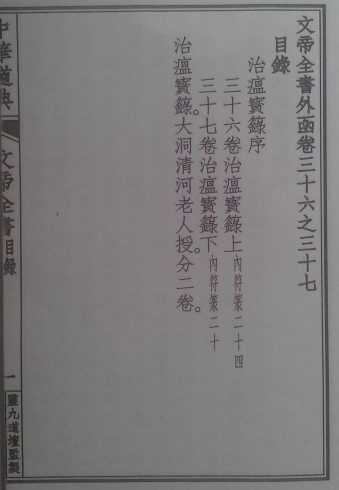 文帝全書外函卷三十六之三十七
目錄
治瘟寳籙序
三十六卷治瘟寳籙上內符篆二十四
三十七卷治瘟寳籙下內符篆二十
治瘟寳籙。大洞清河老人授分二卷。
中華道典
文帝全書目錄
一
靈九道壇監製